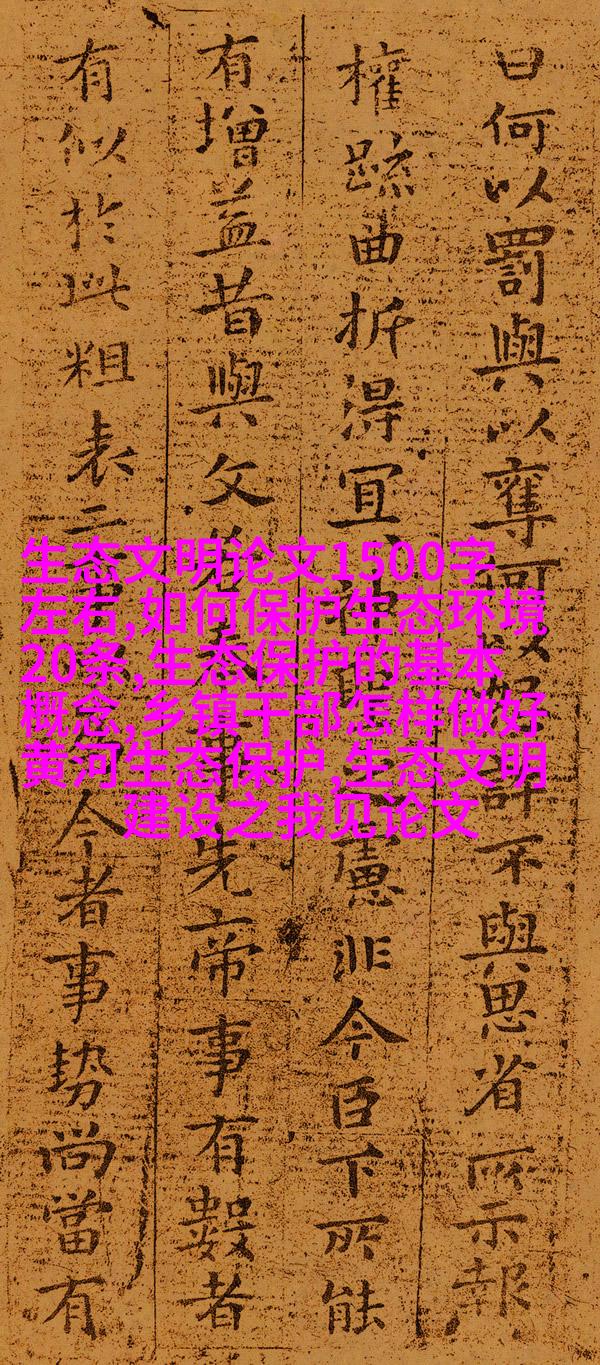 曰何以罰與以奪何許不與思省所示報
權疏曲折得宜神慮非今臣下所能
有增益昔與文若奉事先帝事有數者
有似於此粗表二事今者事勢尚當有
生态文明论文1500字
左右,如何保护生态环境
20条,生态保护的基本
概念,乡镇干部怎样做好
黄河生态保护,生态文明
建设之我见论文